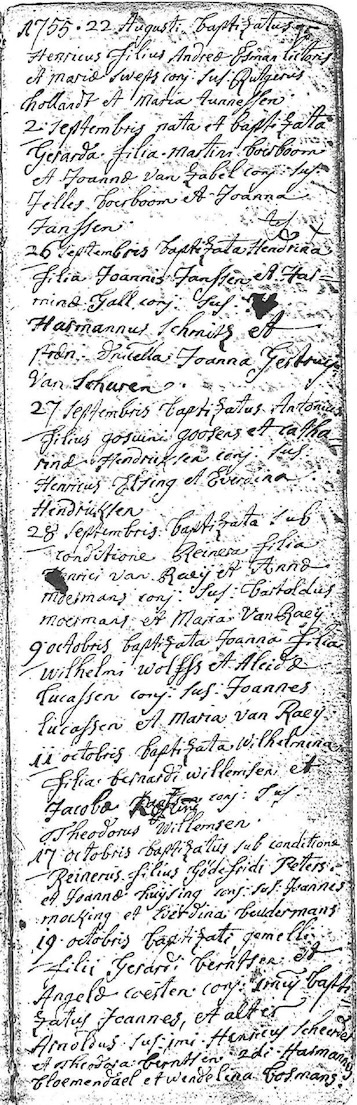 1755. 22 Augusti baptizatus
Henricus filius Andreæ Esman
et mariæ sweps conj: sus: Rutgerus
hollandt et Maria tunnessen
2 septembris nata et baptizata
Gerarda filia martini boerboom
et Joannæ van zabel conj: sus:
Jelles boerboom et Joanna
Janssen
26 septembris baptizata Hendrina
filia Joannis Janssen et Has-
minæ Gall conj: sus:
Harmannus Schmitz et
Joanna Gertruijs
Van Schuren.
27 septembris baptizatus Antonius
filius gosuini goosens et catha-
rinæ Hendricksen conj: sus:
Henricus Elsing et Everdina
Hendricksen
28 septembris baptizata sub
conditione Reinera filia
Henrici van Raeij et Annæ
moermans conj: sus: bartoldus
moermans et Maria Van Raeij
9 octobris baptizata Joanna filia
wilhelmi wolffs et Aleidæ
Lucassen conj: sus: Joannes
Lucassen et maria van Raeij
11 octobris baptizata wilhelmina
filia bernardi willemsen et
Jacobæ conj: sus:
Theodorus Willemsen
17 octobris baptizatus sub conditione
Reinerus filius Godefridi Peters
et Joannæ huijsing conj: sus: Joannes
mocking et Everdina beudermans
19 octobris baptizati gemelli
filii Gerardi berntsen et
Angelæ coesten conj: bapti
zatus Joannes, et alter
Arnoldus sus: imi Henricus
et theodora berntsen 2di Harmannus
bloemendael et wendelina bosmans